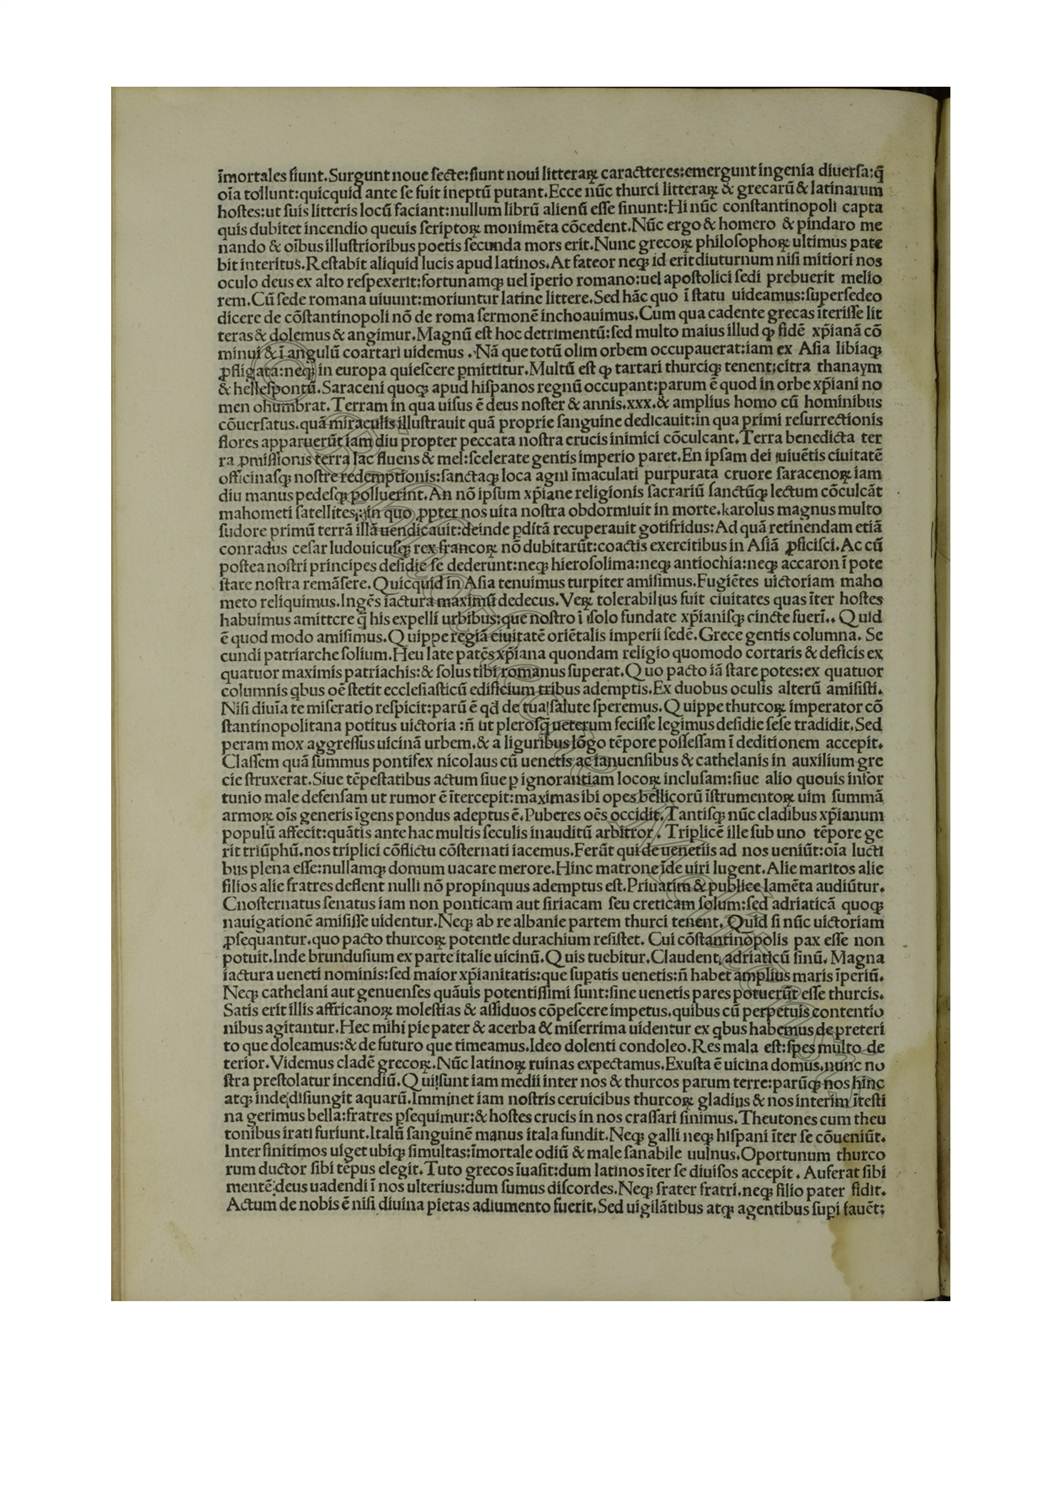 īmortales fiunt.Surgunt noue ſecte:fiunt noui litteraꝝ caracteres:emergunt ingenia diuerſa:q̄
oīa tollunt:quicquid ante ſe fuit ineptū putant.Ecce nūc thurci litteraꝝ & grecarū & latinarum
hoſtes:ut ſuis litteris locū faciant:nullum librū alienū eſſe ſinunt:Hi nūc conſtantinopoli capta
quis dubitet incendio queuis ſcriptoꝝ monimēta cōcedent.Nūc ergo & homero & pindaro me
nando & oībus illuſtrioribus poetis ſecunda mors erit.Nunc grecoꝝ philoſophoꝝ ultimus pate
bit interitus.Reſtabit aliquid lucis apud latinos.At fateor neqꝫ id erit diuturnum niſi mitiori nos
oculo deus ex alto reſpexerit:fortunamqꝫ uel īperio romano:uel apoſtolici ſedi prebuerit melio
rem.Cū ſede romana uiuunt:moriuntur latine littere.Sed hāc quo ī ſtatu uideamus:ſuperſedeo
dicere de cōſtantinopoli nō de roma ſermonē inchoauimus.Cum qua cadente grecas īteriſſe lit
teras & dolemus & angimur.Magnū eſt hoc detrimentū:ſed multo maius illud ꝙ fidē xp̄ianā cō
minui & ī angulū coartari uidemus.Nā que totū olim orbem occupauerat:iam ex Aſia libiaqꝫ
ꝓfligata:neqꝫ in europa quieſcere ꝑmittitur.Multū eſt ꝙ tartari thurciqꝫ tenent:citra thanaym
& helleſpontū.Saraceni quoqꝫ apud hiſpanos regnū occupant:parum ē quod in orbe xp̄iani no
men obumbrat.Terram in qua uiſus ē deus noſter & annis.xxx.& amplius homo cū hominibus
cōuerſatus.quā miraculis illuſtrauit quā proprie ſanguine dedicauit:in qua primi reſurrectionis
flores apparuerūt iam diu propter peccata noſtra crucis inimici cōculcant.Terra benedicta ter
ra ꝓmiſſionis terra lac fluens & mel:ſcelerate gentis imperio paret.En ipſam dei uiuētis ciuitatē
officinaſqꝫ noſtre redemptionis:ſanctaqꝫ loca agni īmaculati purpurata cruore ſaracenoꝝ iam
diu manus pedeſqꝫ polluerint.An nō ipſum xp̄iane religionis ſacrariū ſanctūqꝫ lectum cōculcāt
mahometi ſatellites:in quo ꝓpter nos uita noſtra obdormiuit in morte.karolus magnus multo
ſudore primū terrā illā uendicauit:deinde ꝑditā recuperauit gotifridus:Ad quā retinendam etiā
conradus ceſar ludouicuſqꝫ rex francoꝝ nō dubitarūt:coactis exercitibus in Aſiā ꝓficiſci.Ac cū
poſtea noſtri principes deſidie ſe dederunt:neqꝫ hieroſolima:neqꝫ antiochia:neqꝫ accaron ī pote
ſtate noſtra remāſere.Quicquid in Aſia tenuimus turpiter amiſimus.Fugiētes uictoriam maho
meto reliquimus.Ingēs iactura maximū dedecus.Veꝝ tolerabilius fuit ciuitates quas īter hoſtes
habuimus amittere q̄ his expelli urbibus:que noſtro ī ſolo fundate xp̄ianiſqꝫ cincte fueri..Quid
ē quod modo amiſimus.Quippe regiā ciuitatē oriētalis imperii ſedē.Grece gentis columna. Se
cundi patriarche ſolium.Heu late patēs xp̄iana quondam religio quomodo cortaris & deficis ex
quatuor maximis patriachis:& ſolus tibi romanus ſuperat.Quo pacto iā ſtare potes:ex quatuor
columnis qbus oē ſtetit eccleſiaſticū edificium tribus ademptis.Ex duobus oculis alterū amiſiſti.
Niſi diuīa te miſeratio reſpicit:parū ē qd̄ de tua ſalute ſperemus.Quippe thurcoꝝ imperator cō
ſtantinopolitana potitus uictoria :n̄ ut pleroſq̄ ueterum feciſſe legimus deſidie ſeſe tradidit.Sed
peram mox aggreſſus uicinā urbem.& a liguribus lōgo tēpore poſſeſſam ī deditionem accepit.
Claſſem quā ſummus pontifex nicolaus cū uenetis ac ianuenſibus & cathelanis in auxilium gre
cie ſtruxerat.Siue tēpeſtatibus actum ſiue ꝑ ignorantiam locoꝝ incluſam:ſiue alio quouis infor
tunio male defenſam ut rumor ē ītercepit:maximas ibi opes bellicorū īſtrumentoꝝ uim ſummā
armoꝝ oīs generis īgens pondus adeptus ē.Puberes oēs occidit.Tantiſqꝫ nūc cladibus xp̄ianum
populū affecit:quātis ante hac multis ſeculis inauditū arbitror. Triplicē ille ſub uno tēpore ge
rit triūphū.nos triplici cōflictu cōſternati iacemus.Ferūt qui de uenetiis ad nos ueniūt:oīa lucti
bus plena eſſe:nullamqꝫ domum uacare merore.Hinc matrone īde uiri lugent.Alie maritos alie
filios alie fratres deflent nulli nō propinquus ademptus eſt.Priuatim & publice lamēta audiūtur.
Cnoſternatus ſenatus iam non ponticam aut ſiriacam ſeu creticam ſolum:ſed adriaticā quoqꝫ
nauigationē amiſiſſe uidentur.Neqꝫ ab re albanie partem thurci tenent.Quid ſi nūc uictoriam
ꝓſequantur.quo pacto thurcoꝝ potentie durachium reſiſtet. Cui cōſtantinopolis pax eſſe non
potuit.Inde brunduſium ex parte italie uicinū.Quis tuebitur.Claudent adriaticū ſinū. Magna
iactura ueneti nominis:ſed maior xp̄ianitatis:que ſupatis uenetis:n̄ habet amplius maris īperiū.
Neqꝫ cathelani aut genuenſes quāuis potentiſſimi ſunt:ſine uenetis pares potuerūt eſſe thurcis.
Satis erit illis affricanoꝝ moleſtias & aſſiduos cōpeſcere impetus.quibus cū perpetuis contentio
nibus agitantur.Hec mihi pie pater & acerba & miſerrima uidentur ex qbus habemus de preteri
to que doleamus:& de futuro que timeamus.Ideo dolenti condoleo.Res mala eſt:ſpes multo de
terior.Videmus cladē grecoꝝ.Nūc latinoꝝ ruinas expectamus.Exuſta ē uicina domus.nunc no
ſtra preſtolatur incendiū.Qui ſunt iam medii inter nos & thurcos parum terre:parūqꝫ nos hinc
atqꝫ inde diſiungit aquarū.Imminet iam noſtris ceruicibus thurcoꝝ gladius & nos interim īteſti
na gerimus bella:fratres ꝑſequimur:& hoſtes crucis in nos craſſari ſinimus.Theutones cum theu
tonibus irati furiunt.Italū ſanguinē manus itala fundit.Neqꝫ galli neqꝫ hiſpani īter ſe cōueniūt.
Inter finitimos uiget ubiqꝫ ſimultas:īmortale odiū & male ſanabile uulnus.Oportunum thurco
rum ductor ſibi tēpus elegit.Tuto grecos īuaſit:dum latinos īter ſe diuiſos accepit. Auferat ſibi
mentē deus uadendi ī nos ulterius:dum ſumus diſcordes.Neqꝫ frater fratri.neqꝫ filio pater fidit.
Actum de nobis ē niſi diuina pietas adiumento fuerit.Sed uigilātibus atqꝫ agentibus ſupi fauēt: